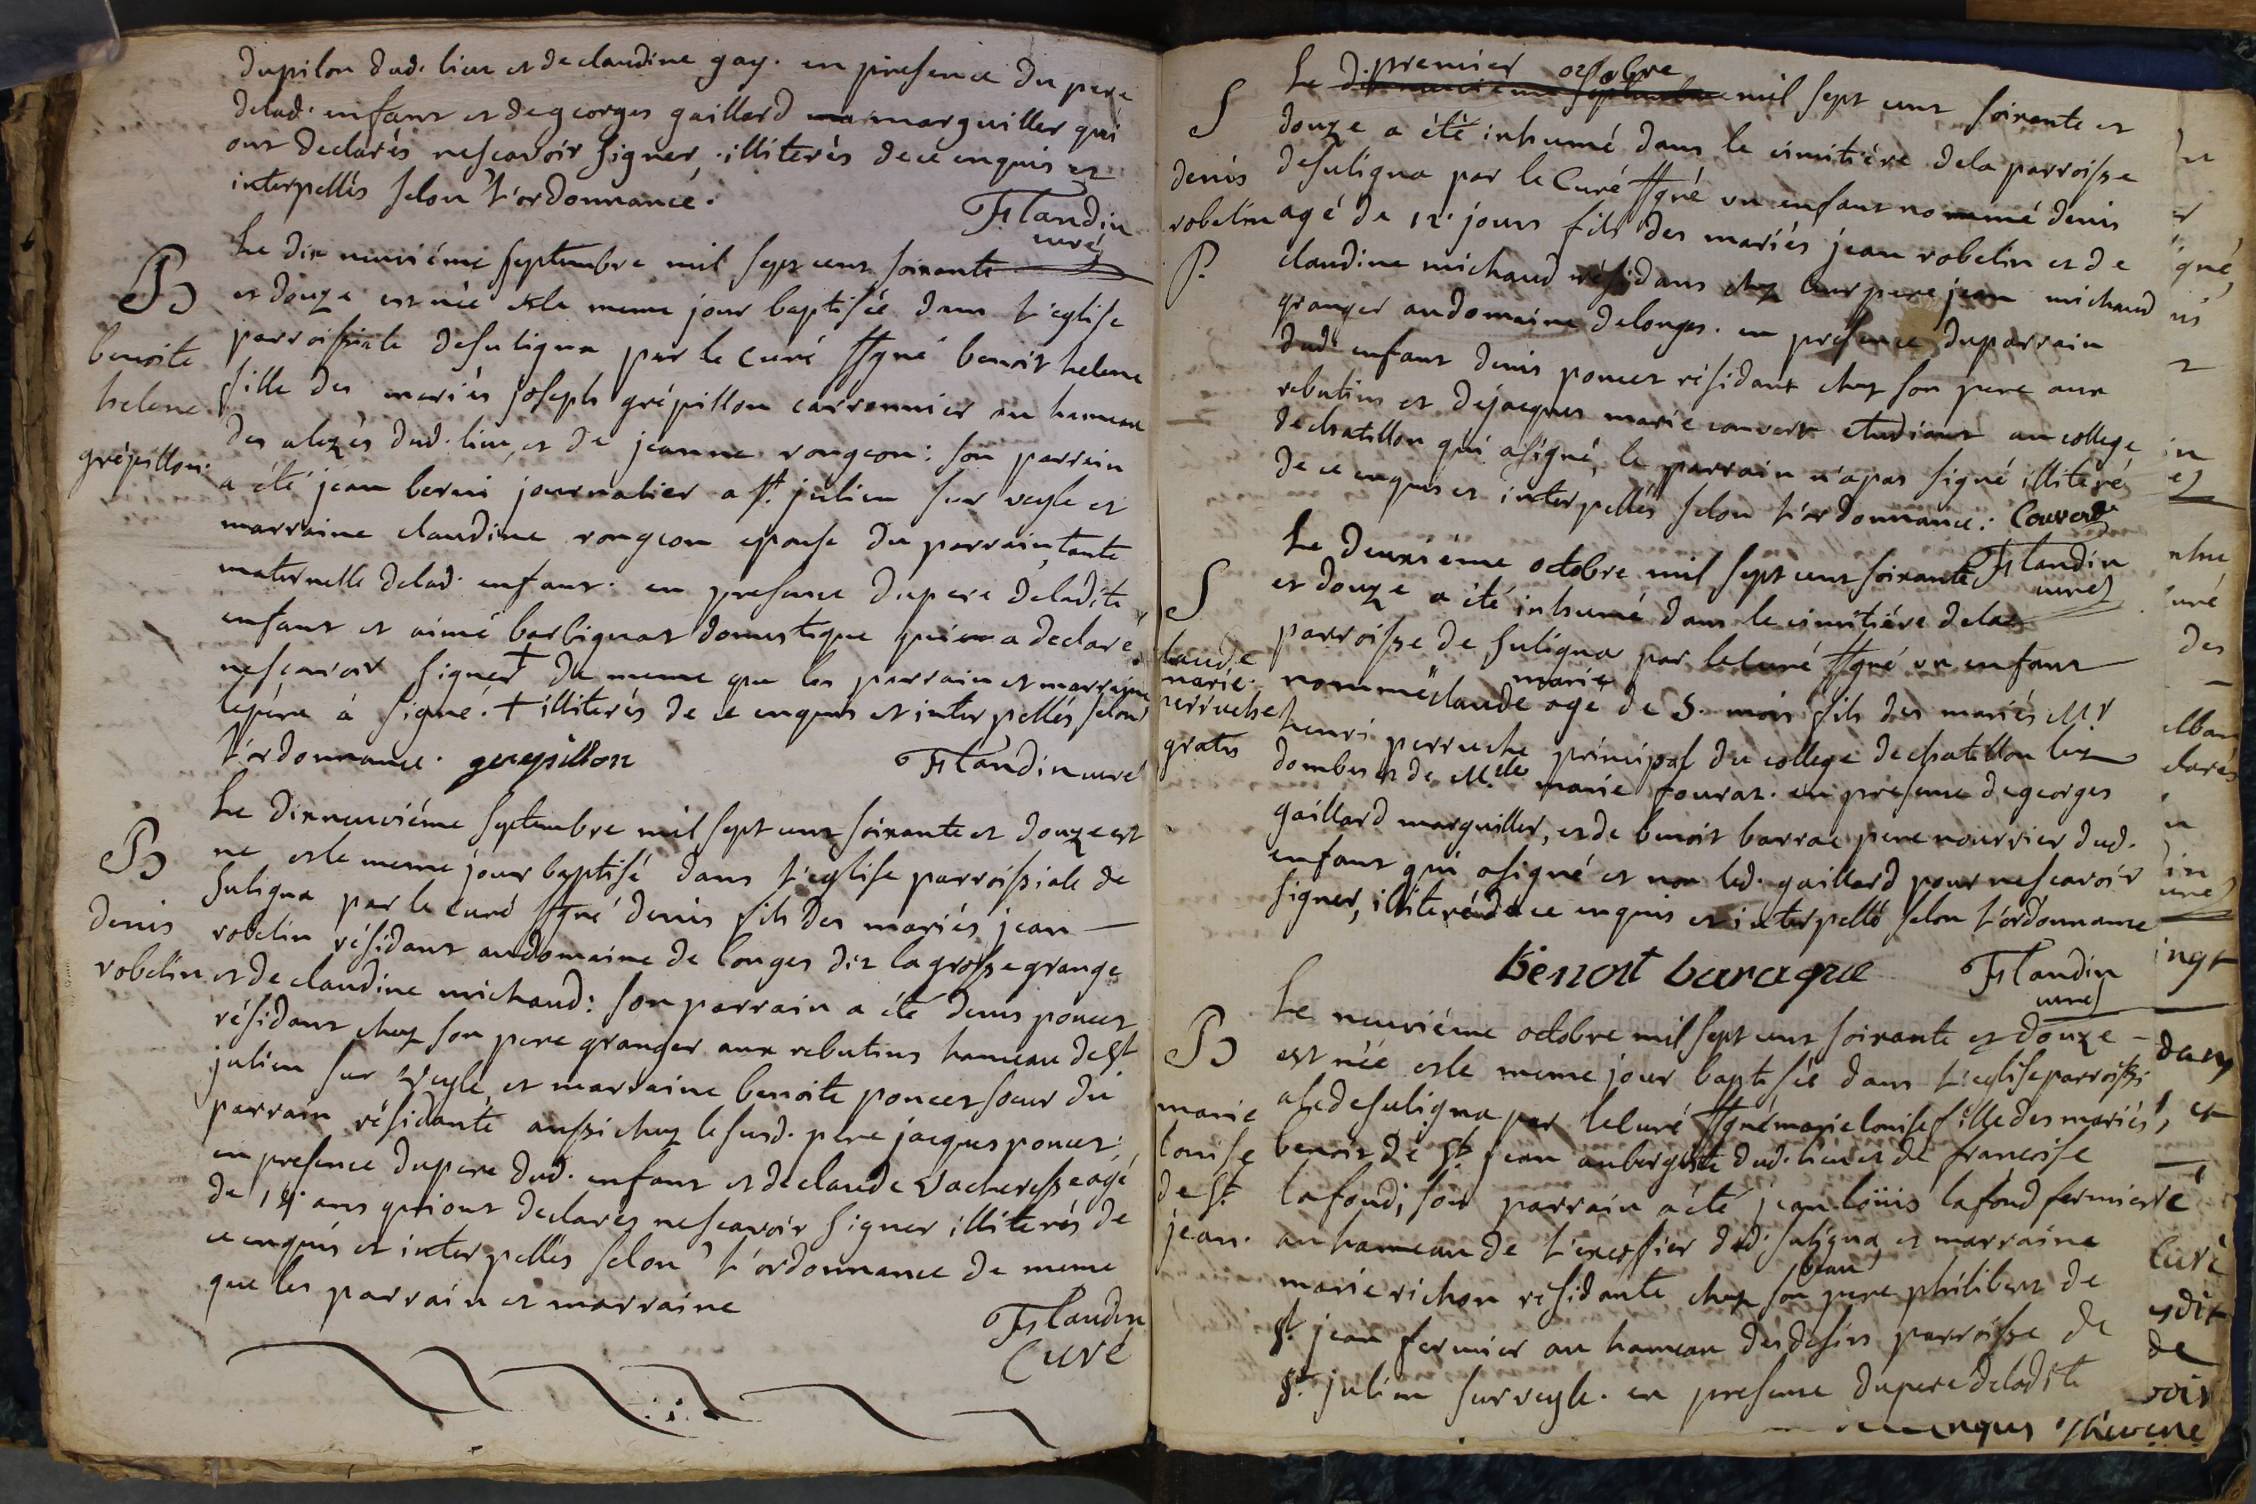 dupilon dud. lieu et de claudine gay. en presence du pere
delad. enfant et de georges gaillard marguiller qui
ont declarés nescavoir signer, illiterés de ce enquis et
interpellés selon l'ordonnance.
Flandin
curé
B
benoite
helene
grépillon.
Le dix neuviéme septembre mil sept cent soixante
et douze est née et le meme jour baptisée dans l'eglise
parroissiale de suligna par le curé ssgné benoit helene
fille des mariés joseph grépillon carronnier au hameau
des alezès dud. lieu, et de jeanne rongeon: son parrain
a été jean berni journalier a st. julien sur veyle et
marraine claudine rongeon epouse du parrain, tante
maternelle delad. enfant. en presence du pere deladite
enfant et aimé barbignat domestique qui a declaré
nescavoir signer + de meme que les parrain et marraine
le pére à signé. + illiterés de ce enquis et interpellés selon
l'ordonnance. grepillon
Flandin curé
B
denis
robelin
Le dixneuviéme septembre mil sept cent soixante et douze est
né et le meme jour baptisé dans l'eglise parroissiale de
suligna par le curé ssgné denis fils des mariés jean
robelin résidant au domaine de longes dit la grosse grange
et de claudine michaud: son parrain a été denis poncet
résidant chez son pere granger aux rebutins hameau de st.
julien sur veyle, et marraine benoite poncet soeur du
parrain résidante aussi chez le susd. pere jacques poncet;
en presence du pere dud. enfant et de claude vacheresse agé
de 14 ans qui ont declarés nescavoir signer illiterés de
ce enquis et interpellés selon l'ordonnance de meme
que les parrain et marraine
Flandin
Curé
S
denis
robelin
P.
premier octobre
Le mil sept cent soixante et
douze a été inhumé dans le cimitiére dela parroisse
desuligna par le Curé ssgné un enfant nommé denis
agé de 12. jours fils des mariés jean robelin et de
claudine michaud résidans chez leur pere jean michaud
granger au domaine de longes. en presence du parrain
dud. enfant denis poncet résidant chez son pere aux
rebutins et de jacques marie convert etudiant au college
de chatillon qui a signé, le parrain n'a pas signé illiteré
de ce enquis et interpellés selon l'ordonnance: Convert
Flandin
curé
S
claude
marie
perruche
gratis
Le deuxiéme octobre mil sept cent soixante
et douze a été inhumé dans le cimitiére dela
parroisse de suligna par le curé ssgné un enfant
nommé claude marie agé de 5. mois fils des mariés Mr
henri perruche principal du college de chatillon les
dombes et de Mlle marie fourat. en presence de georges
gaillard marguiller, et de benoit barrac pere nourrier dud.
enfant qui a signé et non led. gaillard pour nescavoir
signer, illiteré de ce enquis et interpellé selon l'ordonnance
benoit baraque
Flandin
curé
B
marie
louise
de st.
jean.
Le neuviéme octobre mil sept cent soixante et douze
est née et le meme jour baptisée dans l'eglise parroissi
ale de suligna par le curé ssgné marie louise fille des mariés
benoit de st. jean aubergiste dud. lieu et de francoise
lafond; son parrain a été jean loüis lafond fermier
au hameau de dud. suligna, et marraine
marie richon résidante chez son beau pere philibert de
st. jean fermier au hameau parroisse de
st. julien sur veyle. en presence du pere deladite
gné
curé
des
dans
et
Curé
de